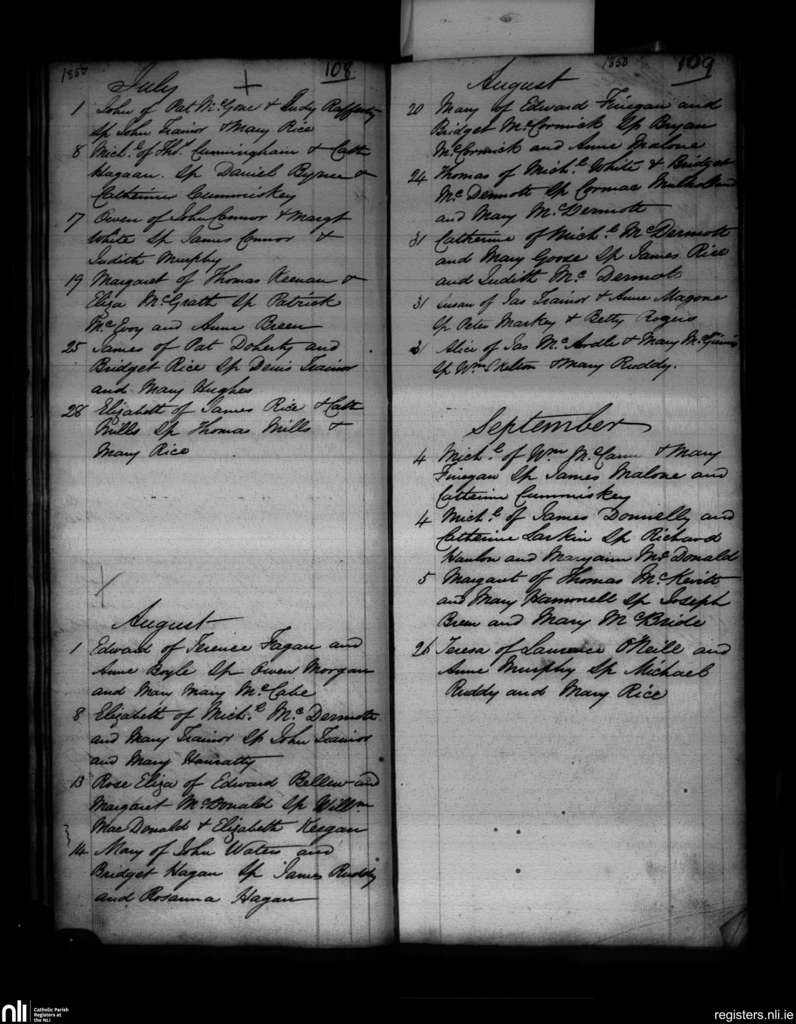 1850
108
July
1 John of Pat McGone & Judy Rafferty
Sp John Trainor & Mary Rice
8 Michl. of Thos. Cunningham & Cath
Hagaan. Sp Daniel Byrne &
Catherine Cummiskey
17 Owen of John Connor & Margt
White Sp James Connor &
Judith Murphy
19 Margaret of Thomas Keenan &
Eliza McGrath Sp Patrick
McEvoy and Anne Breen
25 James of Pat Doherty and
Bridget Rice Sp Denis Trainor
and Mary Hughes
28 Elizabeth of James Rice & Cath
Mills Sp Thomas Mills &
Mary Rice
August
1 Edward of Terence Fagan and
Anne Boyle Sp Owen Morgan
and Mary Mary McCabe
8 Elizabeth of Michl. McDermott
and Mary Trainor Sp John Trainor
and Mary Hanratty
13 Rose Eliza of Edward Bellew and
Margaret McDonald Sp Willm
MacDonald & Elizabeth Keegan
14 Mary of John Waters and
Bridget Hagan Sp James Ruddy
and Rosanna Hagan
1850
109
August
20 Mary of Edward Finegan and
Bridget McCormick Sp Bryan
McCormick and Anne Malone
24 Thomas of Michl. White & Bridget
McDermott Sp Cormac Mulholland
and Mary McDermott
31 Catherine of Michl. McDermott
and Mary Goose Sp James Rice
and Judith McDermot
31 Susan of Jas Trainor & Anne Magone
Sp Peter Markey & Betty Rogers
31 Alice of Jas McArdle & Mary McGinnis
Sp Wm Skelton & Mary Ruddy.
September
4 Michl. of Wm McCann & Mary
Finegan Sp James Malone and
Catherine Cummiskey
4 Michl. of James Donnelly and
Catherine Larkin Sp Richard
Hanlon and Maryann McDonald
5 Margaret of Thomas McKevitt
and Mary Hammell Sp Joseph
Breen and Mary McBride
26 Teresa of Laurence O'Neill and
Anne Murphy Sp Michael
Ruddy and Mary Rice
nli
Catholic Parish
Registers at
the NLI
registers.nli.ie